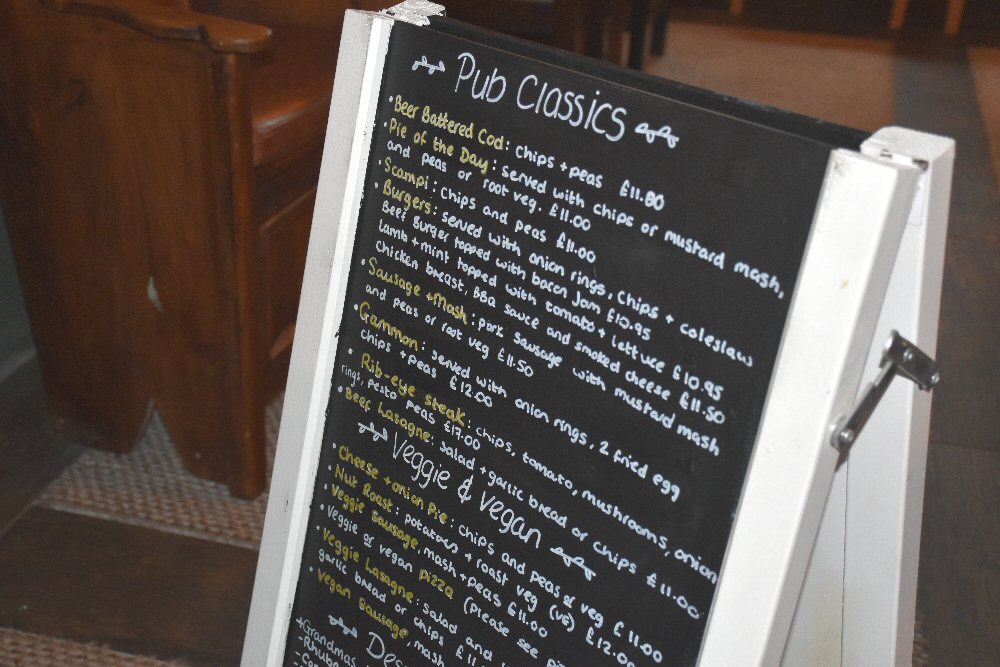 Pub Classics
• Beer Battered Cod: chips + peas £11.80
• Pie of the Day: served with chips or mustard mash,
and peas or root veg. £11.00
• Scampi: Chips and peas £11.00
• Burgers: served with onion rings, chips + coleslaw
Beef Burger topped with bacon jam £10.95
Lamb + mint topped with tomato + lettuce £10.95
Chicken breast, BBQ sauce and smoked cheese £11.50
• Sausage + Mash: pork sausage with mustard mash
and peas or root veg £11.50
• Gammon: served with onion rings, 2 fried egg
chips + peas £12.00
• Rib-eye steak: chips, tomato, mushrooms, onion
rings, pesto peas £17.00
• Beef Lasagne: salad + garlic bread or chips £11.00
Veggie & Vegan
• Cheese + onion Pie: chips and peas or veg £11.00
• Nut Roast: potatoes + roast veg (ve) £12.00
• Veggie Sausage, mash + peas £11.00
• Veggie or vegan pizza (please see
• Veggie Lasagne: salad and
garlic bread or chips £11
• Vegan Sausage, mash
Des
Grandmas
- Rhuba